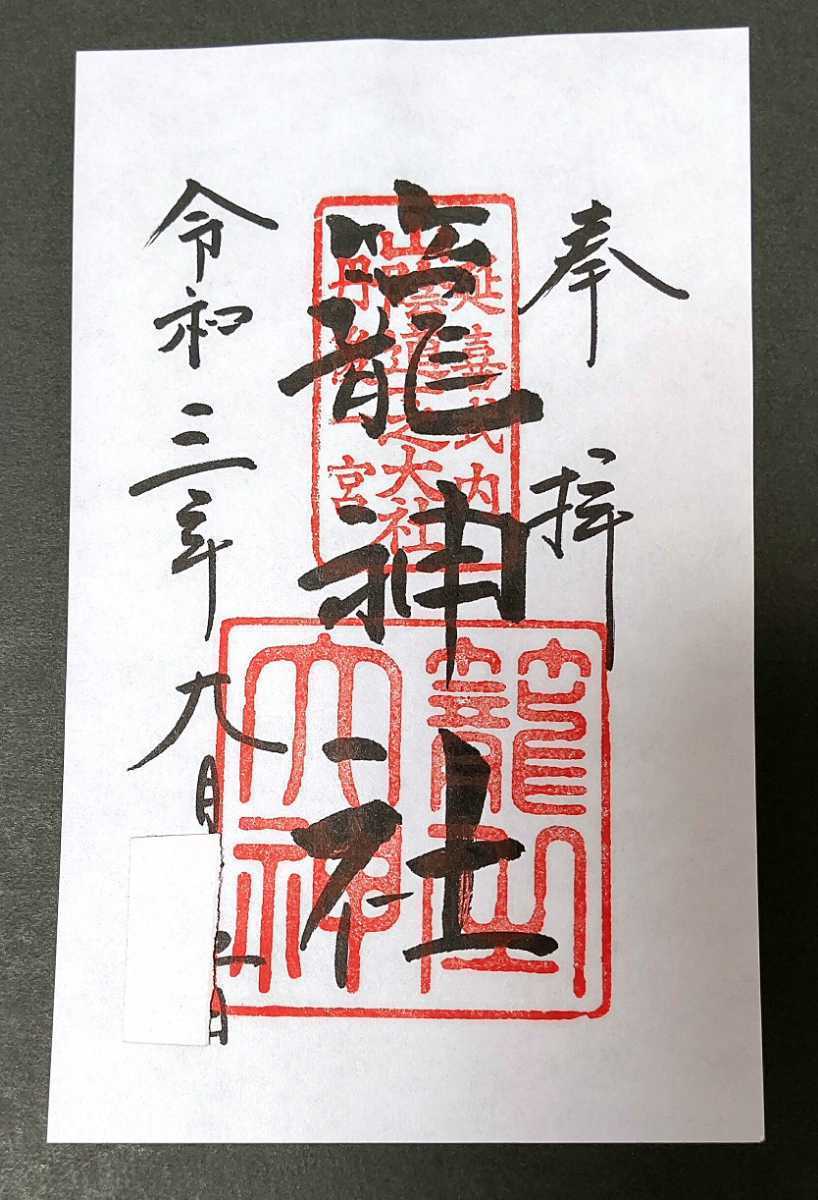 奉拝
延喜式内
山陰道之大社
丹後一宮
籠神社
籠之大神
令和三年九月
日